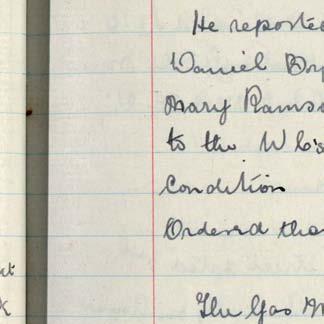 He reported
Daniel
Mary Rams
to the W.C's
Condition
Ordered tha
The Gas